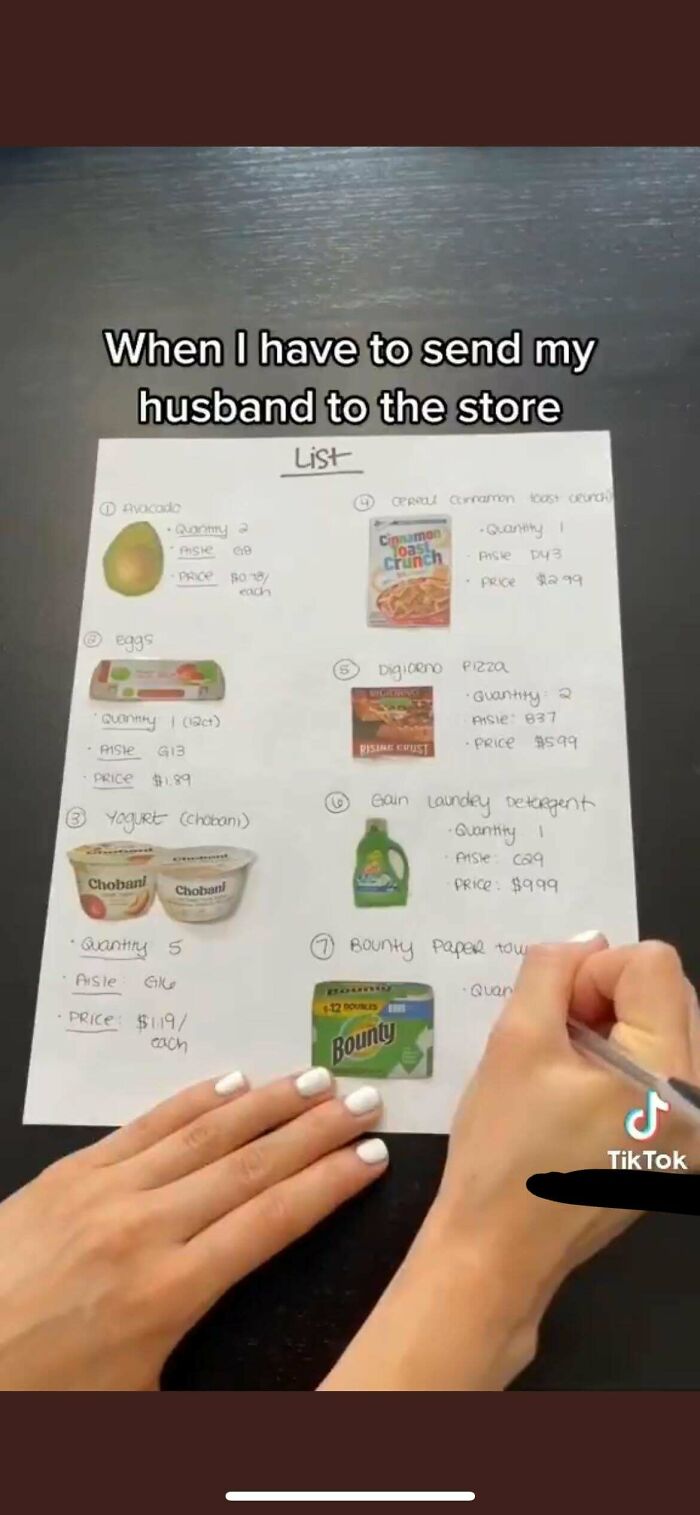 When I have to send my
husband to the store
List
① Avocado
· Quantity 2
· Aisle G8
· Price $0.78/
each
② eggs
· Quantity 1 (12ct)
· Aisle G13
· Price $1.89
③ Yogurt (chobani)
Chobani
Chobani
· Quantity 5
· Aisle: G16
· Price: $1.19/
each
④ cereal cinnamon toast crunch
Cinnamon
Toast
Crunch
· Quantity 1
· Aisle D43
· Price $2.99
⑤ Digiorno Pizza
DIGIORNO
RISING CRUST
· Quantity: 2
· Aisle: B37
· Price $5.99
⑥ Gain Laundry Detergent
· Quantity 1
· Aisle: C29
· Price: $9.99
⑦ Bounty Paper tow
Bounty
12 DOUBLES
Bounty
· Quan
TikTok